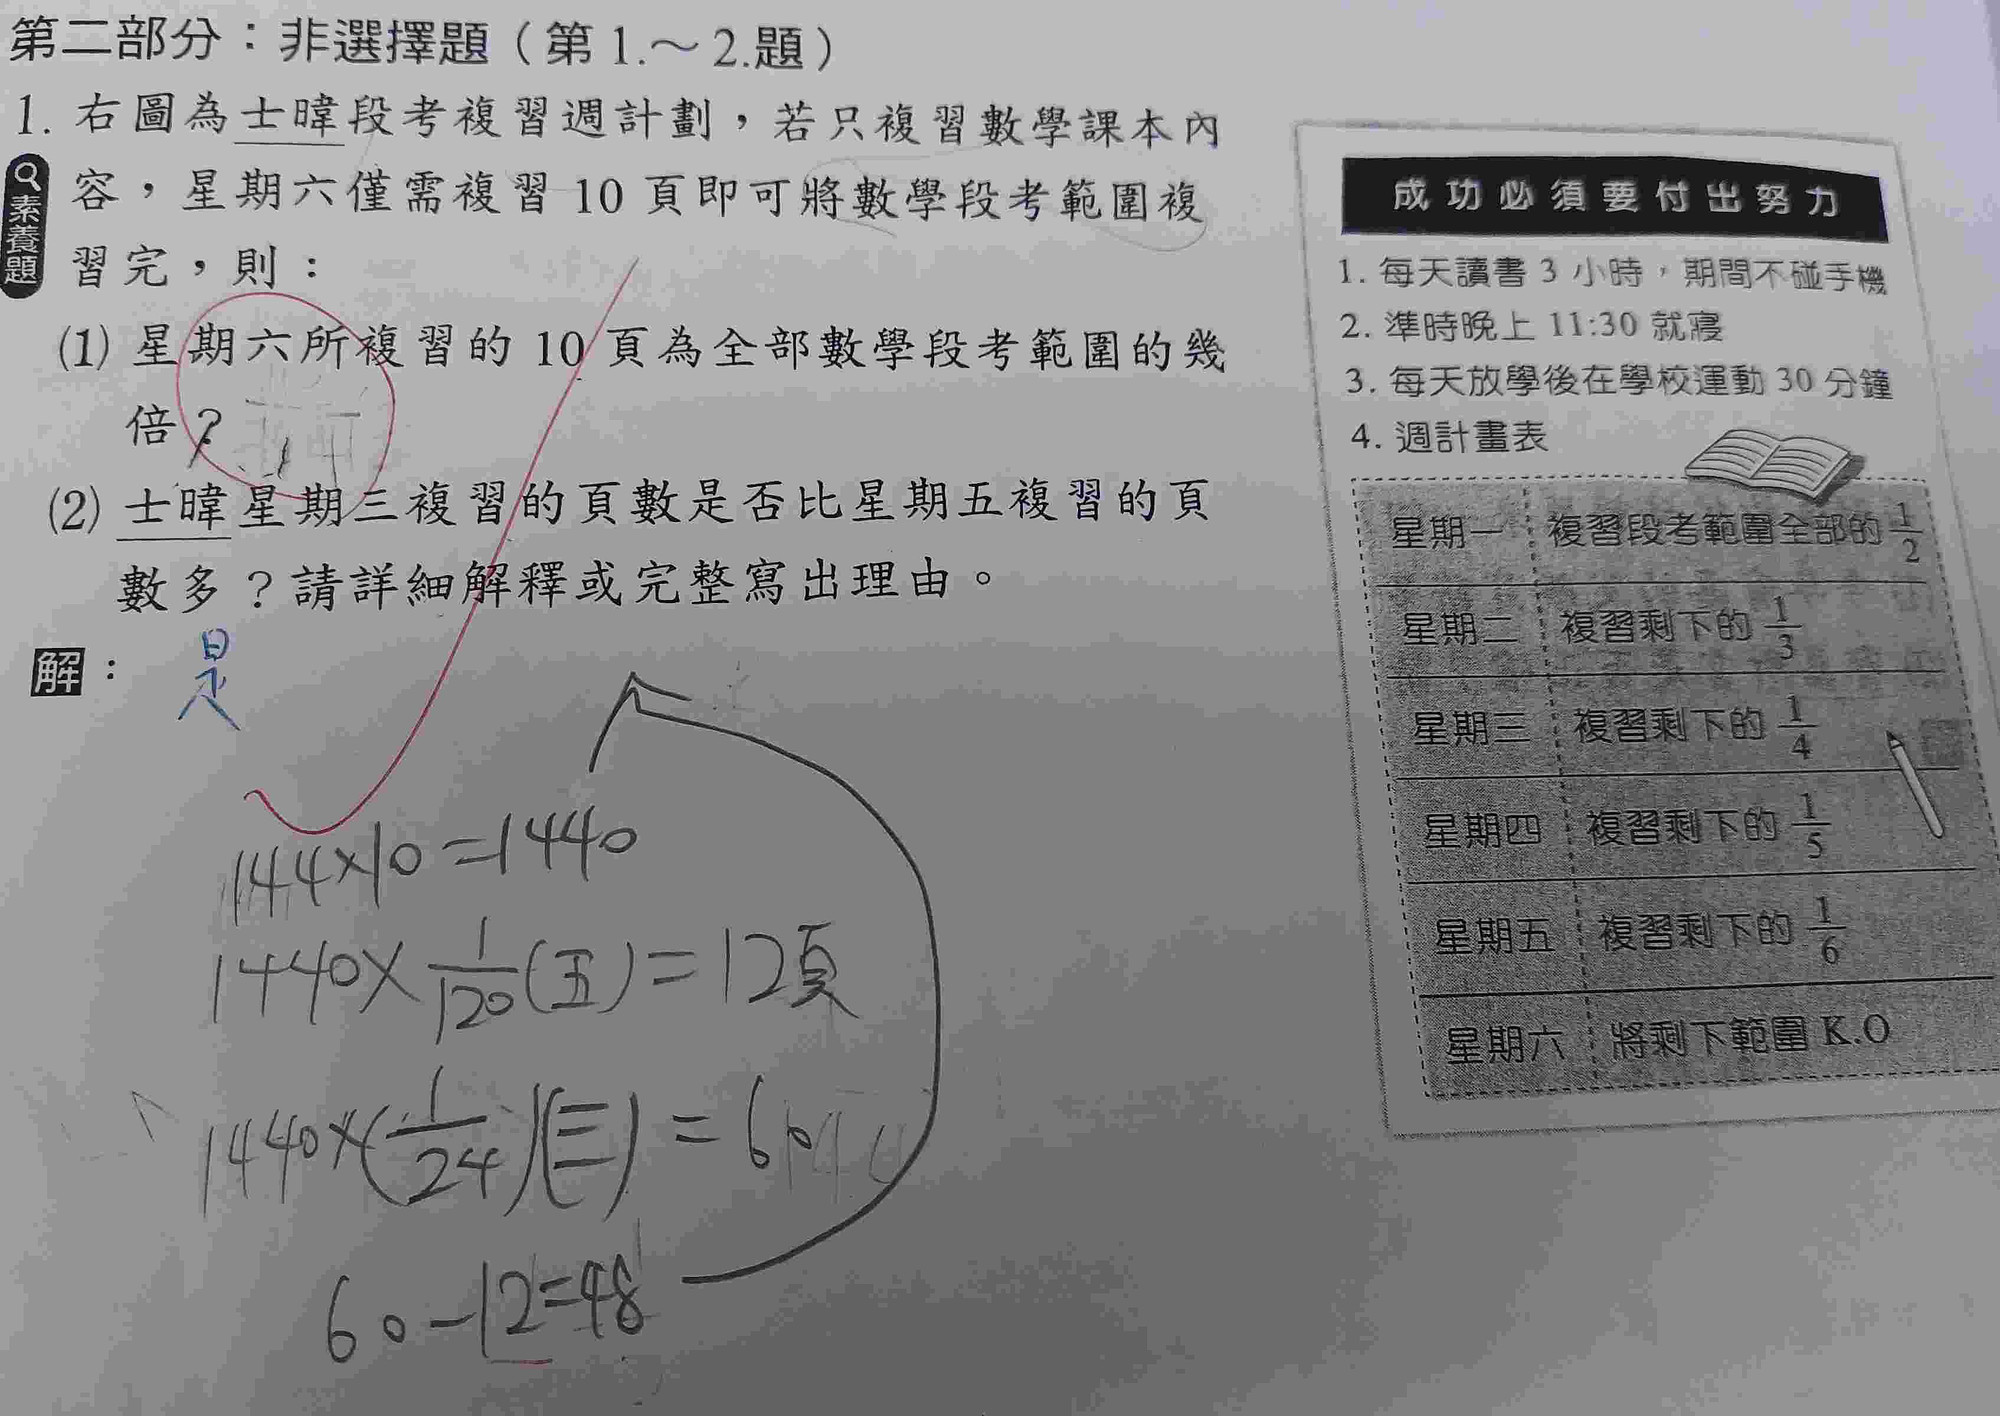 第二部分：非選擇題（第1.～2.題）
1. 右圖為士暐段考複習週計劃，若只複習數學課本內
素養題
容，星期六僅需複習10頁即可將數學段考範圍複
習完，則：
(1) 星期六所複習的10頁為全部數學段考範圍的幾
倍？
(2) 士暐星期三複習的頁數是否比星期五複習的頁
數多？請詳細解釋或完整寫出理由。
解：
是
144×10=1440
1440×1/120(五)=12頁
1440×(1/24)(三)=60
60-12=48
成功必須要付出努力
1. 每天讀書3小時，期間不碰手機
2. 準時晚上11:30就寢
3. 每天放學後在學校運動30分鐘
4. 週計畫表
星期一 複習段考範圍全部的1/2
星期二 複習剩下的1/3
星期三 複習剩下的1/4
星期四 複習剩下的1/5
星期五 複習剩下的1/6
星期六 將剩下範圍K.O